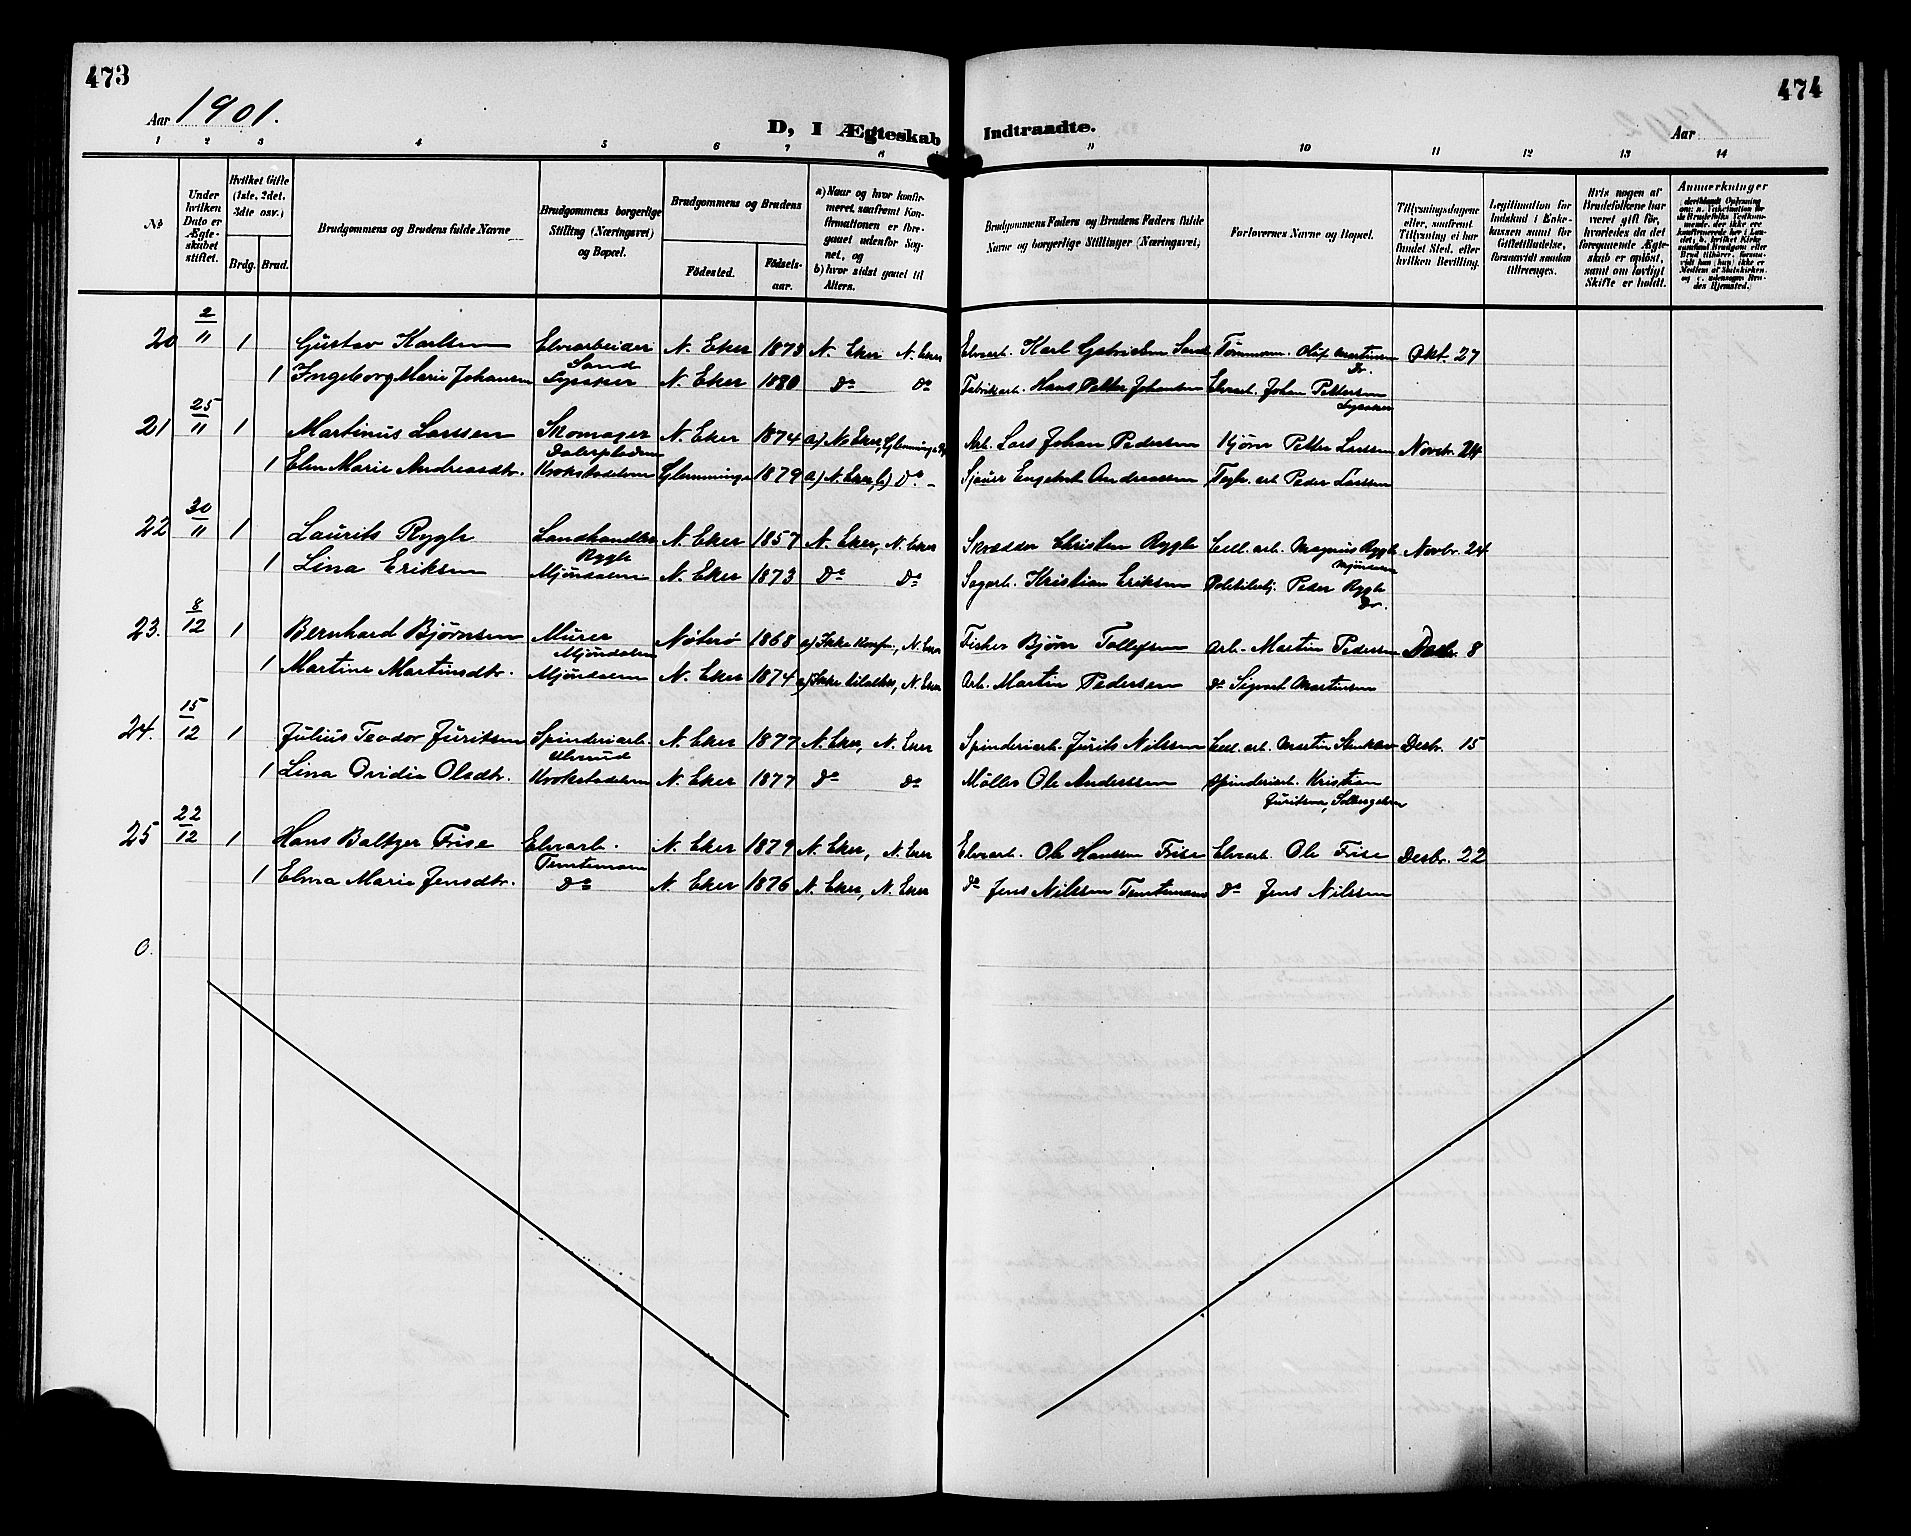 473
474
Aar 1901.
D, I Ægteskab Indtraadte.
Aar
1 2 3 4 5 6 7 8 9 10 11 12 13 14
№
Under hvilken Dato er Ægteskabet stiftet.
Hvilket Gifte (1ste, 2det, 3die osv.)
Brdg. Brud.
Brudgommens og Brudens fulde Navne
Brudgommens borgerlige Stilling (Næringsvei) og Bopæl.
Brudgommens og Brudens
Födested.
Födselsaar.
a) Naar og hvor konfirmeret, saafremt Konfirmationen er foregaaet udenfor Sognet, og
b) hvor sidst gaaet til Alters.
Brudgommens Faders og Brudens Faders fulde Navne og borgerlige Stillinger (Næringsvei)
Forlovernes Navne og Bopæl.
Tillysningsdagene eller, saafremt Tillysning ei har fundet Sted, efter hvilken Bevilling.
Legitimation for Indskud i Enkekassen samt for Giftetilladelse, forsaavidt saadan tiltrænges.
Hvis nogen af Brudefolkene har været gift før, hvorledes da det foregaaende Ægteskab er oplöst, samt om lovligt Skifte er holdt.
Anmærkninger
20 2/11 1 Gustav Karlsen Elvearbeider N. Eker 1873 N. Eker N. Eker Elvearb. Karl Gabrielsen Sand Tømmerm. Oluf Martinsen Okt. 27
Sand Dr.
1 Ingeborg Marie Johansen N. Eker 1880 Do Do Fabrikarb. Hans Petter Johansen Elvearb. Johan Pettersen
21 25/11 1 Martinus Larssen Skomager N. Eker 1874 a) N. Eker, Glemminge Arb. Lars Johan Pedersen Petter Larssen Novbr. 24
1 Elen Marie Andreasdtr. Krokstadelven Glemminge 1879 a) N. Eker, b) Do - Sjauer Engebret Andreassen Teglv. arb. Peder Larssen
22 30/11 1 Laurits Rygh Landhandler N. Eker 1857 N. Eker, N. Eker Skrædder Christen Rygh Cell. arb. Magnus Rygh Novbr. 24
Rygh Mjøndalen
1 Lina Eriksen Mjøndalen N. Eker 1873 Do Do Sagarb. Kristian Eriksen Peder Rygh
Dr.
23. 8/12 1 Bernhard Bjørnsen Murer Nøterø 1868 a) Ikke konfir., N. Eker Fisker Bjørn Tollefsen Arb. Martin Pedersen Desbr. 8
Mjøndalen
1 Martine Martinsdtr. Mjøndalen N. Eker 1874 N. Eker Arb. Martin Pedersen Do Sigvart Martinsen
24. 15/12 1 Julius Teodor Juritsen Spinderiarb. N. Eker 1877 N. Eker, N. Eker Spinderiarb. Jurits Nilssen Cell. arb. Martin Desbr. 15
1 Lina Ovidia Olsdtr. Krokstadelven N. Eker 1877 Do Do Møller Ole Anderssen Spinderiarb. Kristian
Juritsen, Solbergelven
25 22/12 1 Hans Baltzer Frise Elvearb. N. Eker 1879 N. Eker, N. Eker Elvearb. Ole Hanssen Frise Elvearb. Ole Frise Desbr. 22
1 Elma Marie Jensdtr. Do N. Eker 1876 N. Eker, N. Eker Do Jens Nilssen Do Jens Nilssen
0.